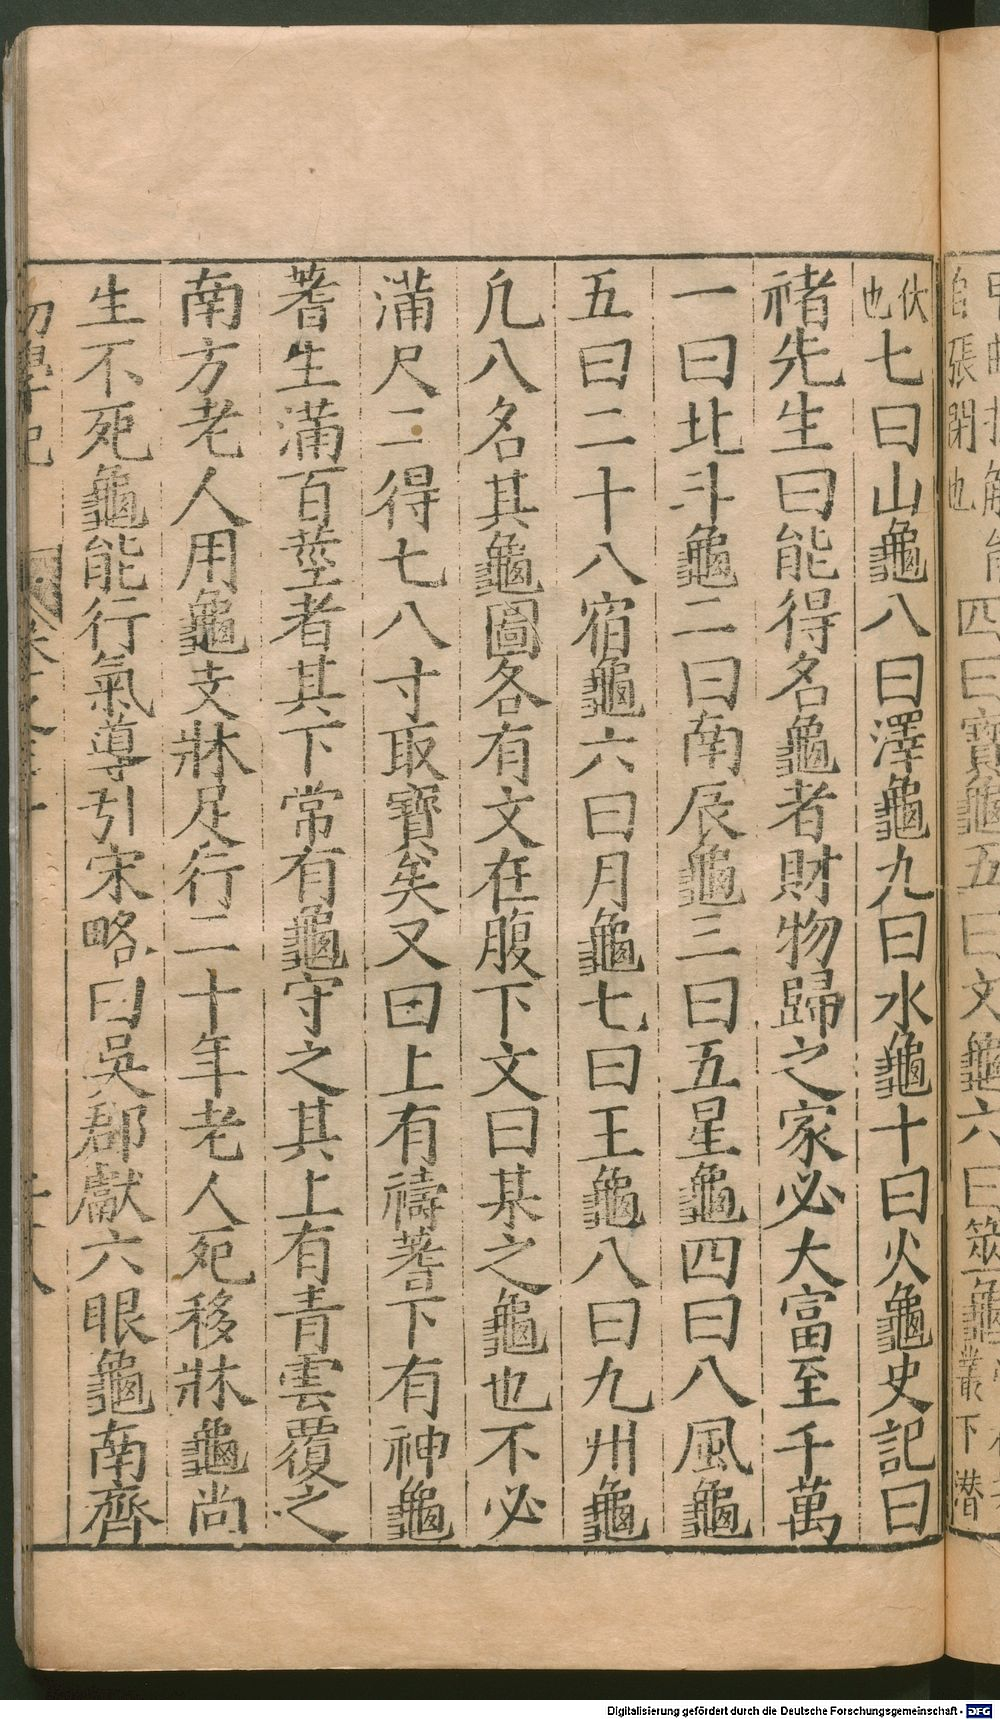 自張閉也
四曰寶龜五曰文龜六曰筮龜
叢下潜
伏
也
七曰山龜八曰澤龜九曰水龜十曰火龜史記曰
禇先生曰能得名龜者財物歸之家必大富至千萬
一曰北斗龜二曰南辰龜三曰五星龜四曰八風龜
五曰二十八宿龜六曰月龜七曰王龜八曰九州龜
凢八名其龜圖各有文在腹下文曰某之龜也不必
滿尺二得七八寸取寶矣又曰上有禱蓍下有神龜
蓍生滿百莖者其下常有龜守之其上有青雲覆之
南方老人用龜支牀足行二十年老人死移牀龜尚
生不死龜能行氣導引宋略曰吳郡獻六眼龜南齊
初學記
Digitalisierung gefördert durch die Deutsche Forschungsgemeinschaft - DFG